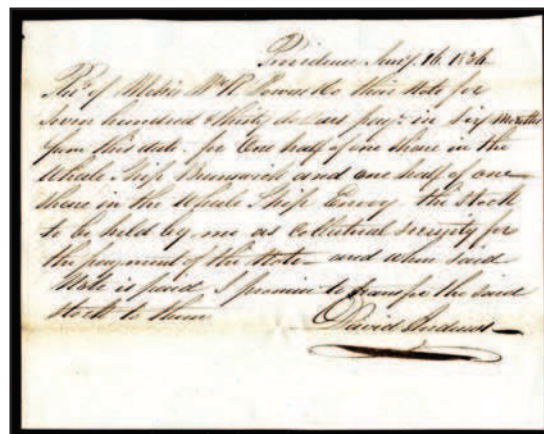 Providence Aug. 16. 1836
Rec'd of Messrs Wm R. Bowers & Co their Note for
seven hundred & thirty dollars pay. in six Months
from this date. for One half of one share in the
Whale Ship Brunswick and one half of one
share in the Whale Ship Envoy the Stock
to be held by me as Collateral security for
the payment of the Note and when said
Note is paid I promise to transfer the said
Stock to them
David Andrews